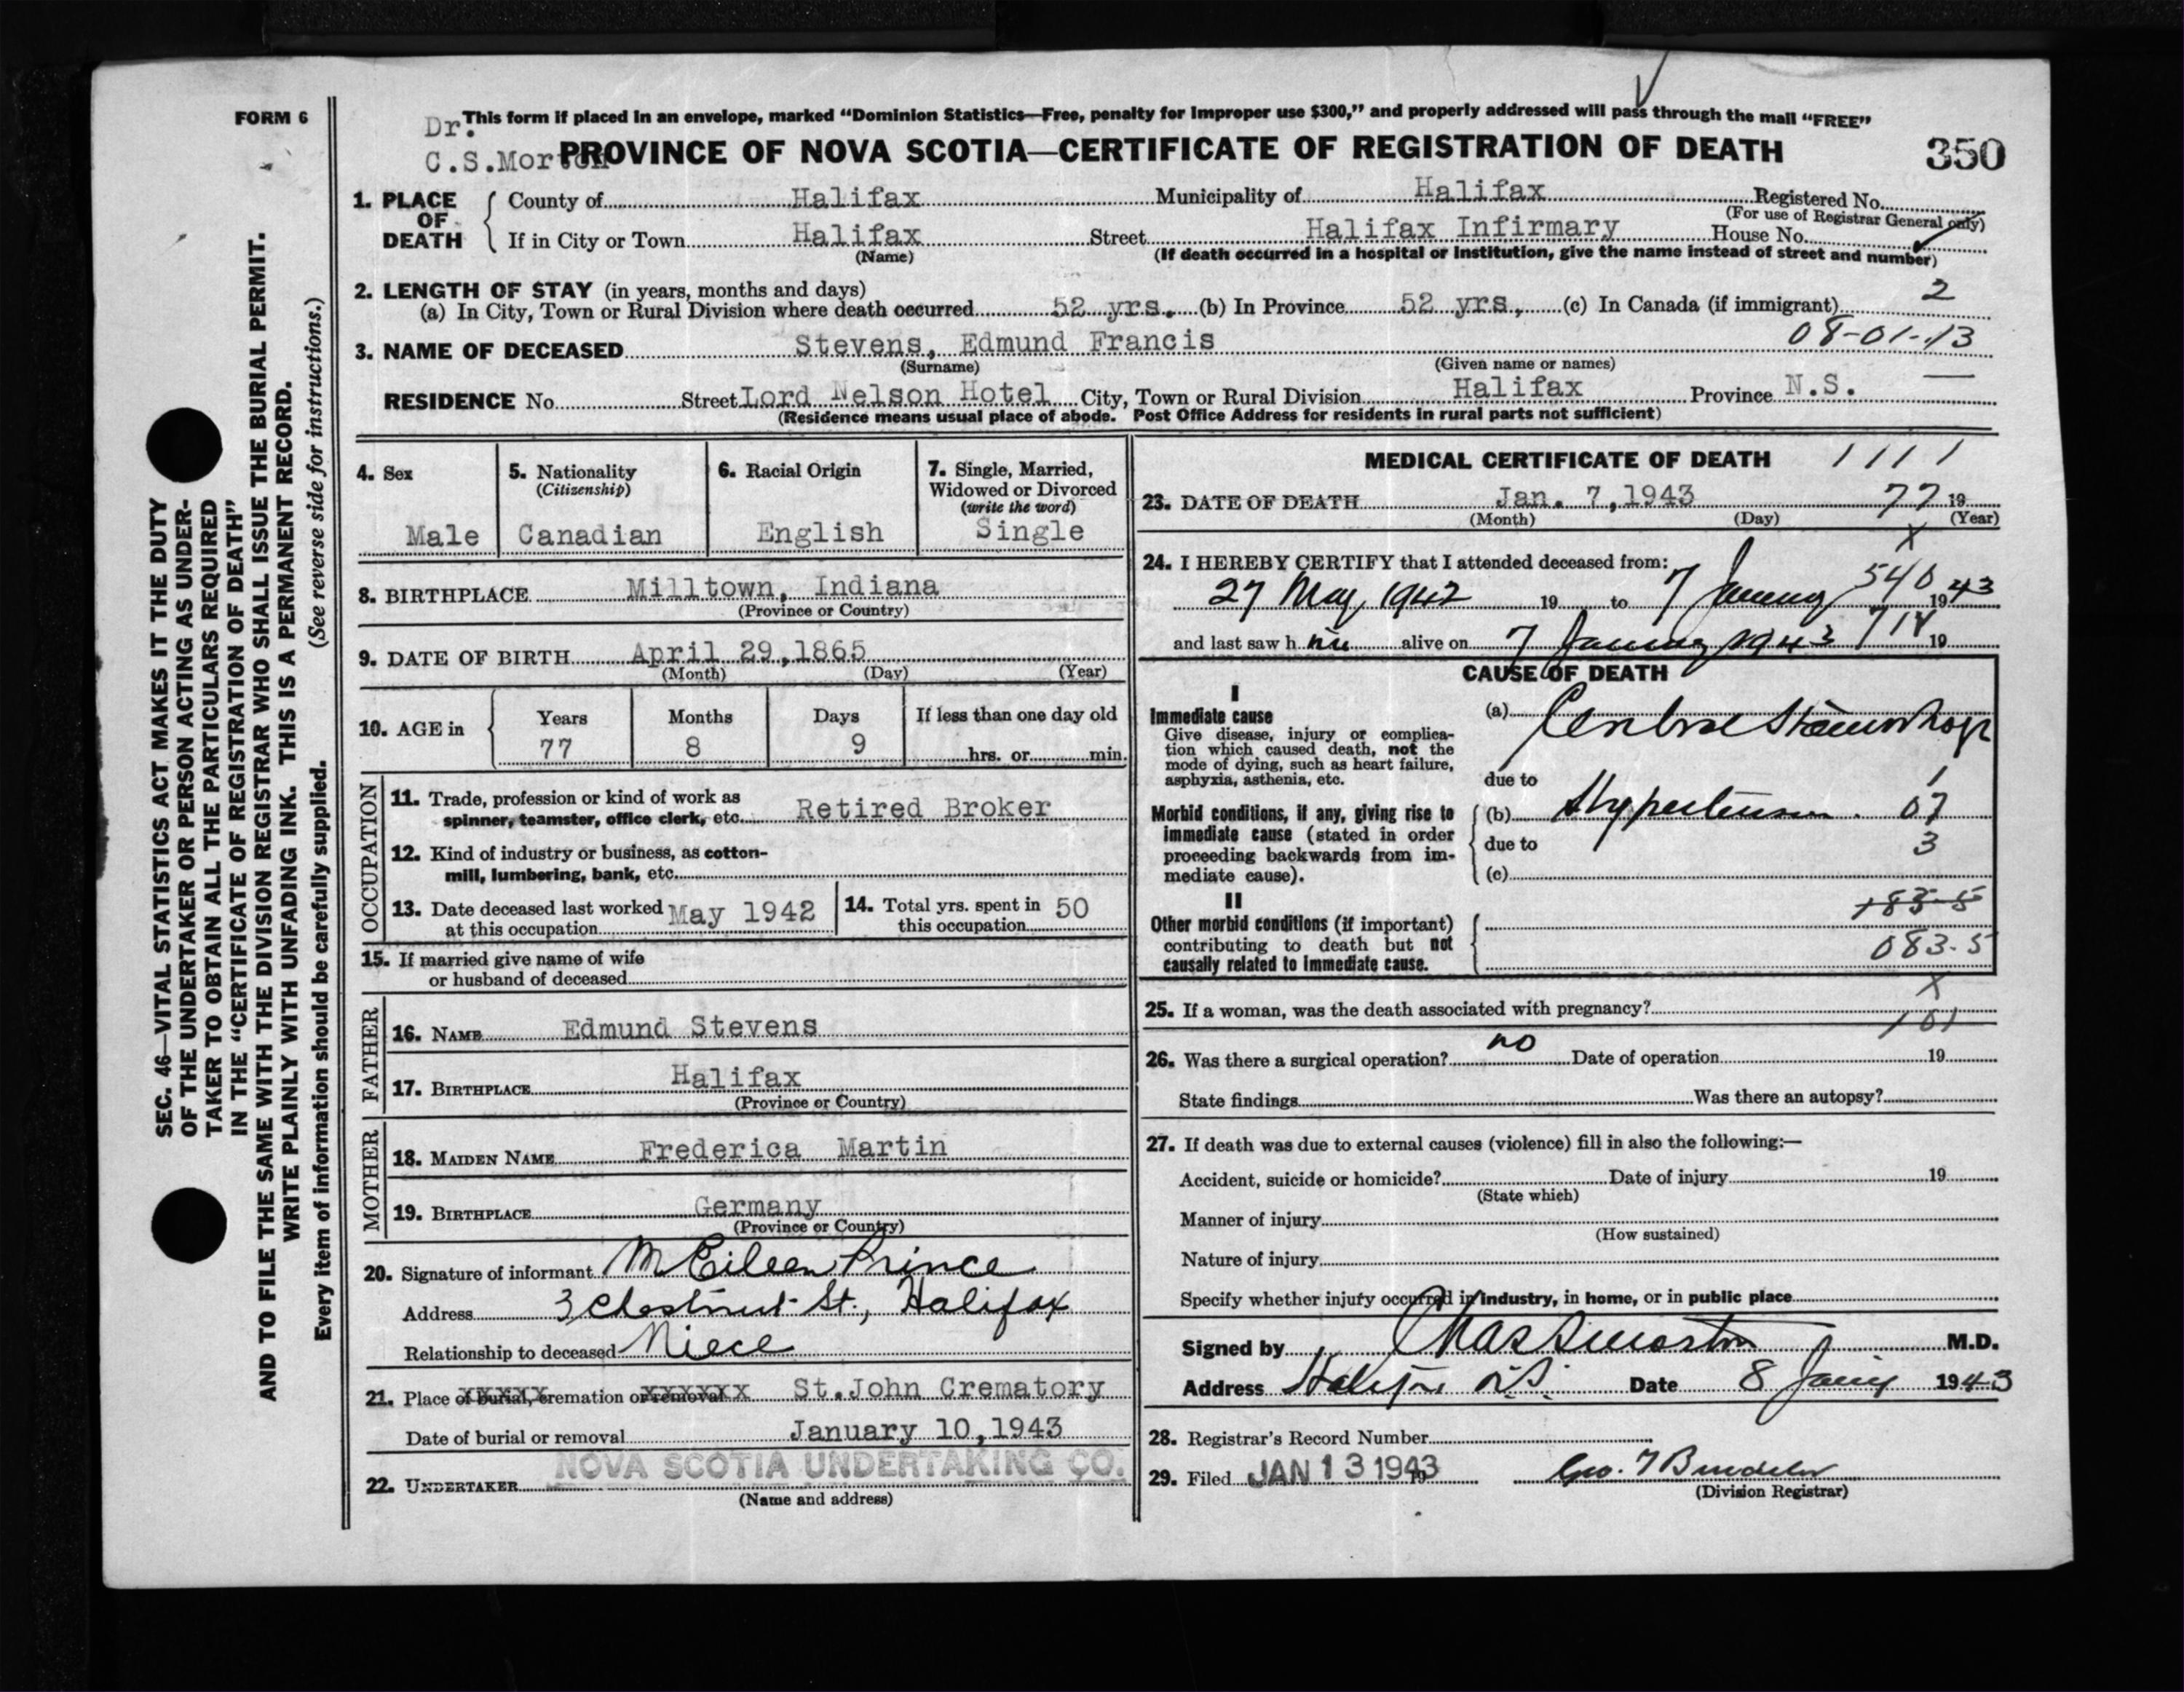 FORM 6
Dr. This form if placed in an envelope, marked “Dominion Statistics—Free, penalty for improper use $300,” and properly addressed will pass through the mail “FREE”
C.S.Morton PROVINCE OF NOVA SCOTIA—CERTIFICATE OF REGISTRATION OF DEATH 350
1. PLACE OF DEATH
County of Halifax Municipality of Halifax Registered No.
(For use of Registrar General only)
If in City or Town Halifax Street Halifax Infirmary House No.
(Name) (If death occurred in a hospital or institution, give the name instead of street and number)
2. LENGTH OF STAY (in years, months and days) 2
(a) In City, Town or Rural Division where death occurred 52 yrs. (b) In Province 52 yrs. (c) In Canada (if immigrant)
08-01-13
3. NAME OF DECEASED Stevens, Edmund Francis
(Surname) (Given name or names)
RESIDENCE No. Street Lord Nelson Hotel City, Town or Rural Division Halifax Province N.S.
(Residence means usual place of abode. Post Office Address for residents in rural parts not sufficient)
4. Sex
Male
5. Nationality
(Citizenship)
Canadian
6. Racial Origin
English
7. Single, Married,
Widowed or Divorced
(write the word)
Single
8. BIRTHPLACE Milltown, Indiana
(Province or Country)
9. DATE OF BIRTH April 29,1865
(Month) (Day) (Year)
10. AGE in
Years Months Days If less than one day old
77 8 9 hrs. or min.
OCCUPATION
11. Trade, profession or kind of work as
spinner, teamster, office clerk, etc. Retired Broker
12. Kind of industry or business, as cotton-
mill, lumbering, bank, etc.
13. Date deceased last worked May 1942
at this occupation
14. Total yrs. spent in 50
this occupation
15. If married give name of wife
or husband of deceased
FATHER
16. NAME Edmund Stevens
17. BIRTHPLACE Halifax
(Province or Country)
MOTHER
18. MAIDEN NAME Frederica Martin
19. BIRTHPLACE Germany
(Province or Country)
20. Signature of informant M Eileen Prince
Address 3 Chestnut St., Halifax
Relationship to deceased Niece
21. Place of burial, cremation or removal St.John Crematory
Date of burial or removal January 10,1943
22. UNDERTAKER NOVA SCOTIA UNDERTAKING CO.
(Name and address)
MEDICAL CERTIFICATE OF DEATH 1111
23. DATE OF DEATH Jan. 7,1943 77 19
(Month) (Day) (Year)
X
24. I HEREBY CERTIFY that I attended deceased from: 540
27 May 1942 19 to 7 January 1943
and last saw h im alive on 7 January 1943 714 19
CAUSE OF DEATH
I
Immediate cause
Give disease, injury or complica-
tion which caused death, not the
mode of dying, such as heart failure,
asphyxia, asthenia, etc.
(a) Cerebral Haemorrhage
due to 1
Morbid conditions, if any, giving rise to
immediate cause (stated in order
proceeding backwards from im-
mediate cause).
(b) Hypertension. 07
due to 3
(c)
II
Other morbid conditions (if important)
contributing to death but not
causally related to immediate cause.
183-5
083-5
X
25. If a woman, was the death associated with pregnancy?
101
26. Was there a surgical operation? no Date of operation 19
State findings Was there an autopsy?
27. If death was due to external causes (violence) fill in also the following:—
Accident, suicide or homicide? Date of injury 19
(State which)
Manner of injury
(How sustained)
Nature of injury
Specify whether injury occurred in industry, in home, or in public place
Signed by Chas S Morton M.D.
Address Halifax N.S. Date 8 Jany 1943
28. Registrar's Record Number
29. Filed JAN 13 1943
(Division Registrar)
SEC. 46—VITAL STATISTICS ACT MAKES IT THE DUTY
OF THE UNDERTAKER OR PERSON ACTING AS UNDER-
TAKER TO OBTAIN ALL THE PARTICULARS REQUIRED
IN THE “CERTIFICATE OF REGISTRATION OF DEATH”
AND TO FILE THE SAME WITH THE DIVISION REGISTRAR WHO SHALL ISSUE THE BURIAL PERMIT.
WRITE PLAINLY WITH UNFADING INK. THIS IS A PERMANENT RECORD.
Every item of information should be carefully supplied. (See reverse side for instructions.)